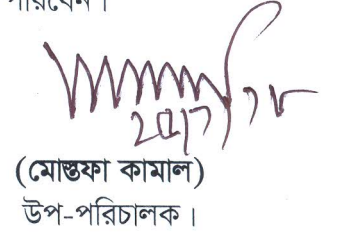 পারবেন।
(মোস্তফা কামাল)
উপ-পরিচালক।